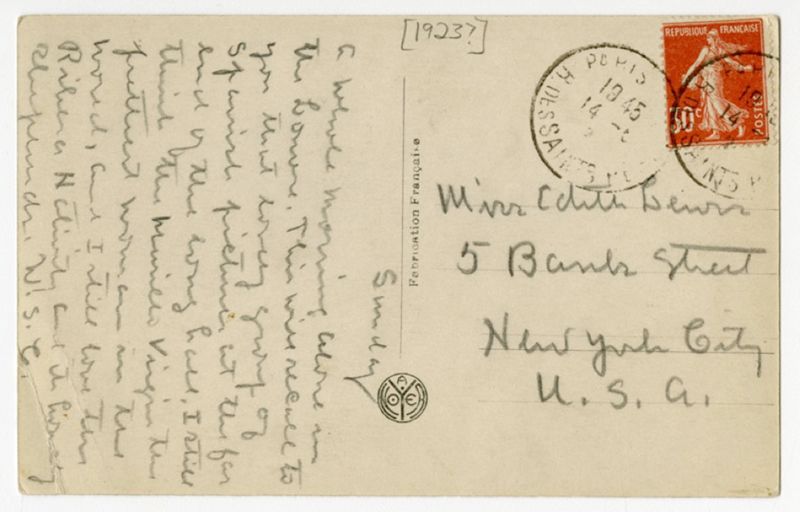 [1923?]
Sunday
A whole morning alone in
the Louvre. This will recall to
you that lovely group of
Spanish pictures at the far
end of the long hall. I still
think the Murillo Virgin the
prettiest woman in the
world, and I still love the
Ribera Nativity and the homely
shepherds. W. S. C.
Fabrication Française
REPUBLIQUE FRANÇAISE
30c
POSTES
PARIS
1945
14
R. DES SAINTS PERES
Miss Edith Lewis
5 Bank Street
New York City
U. S. A.